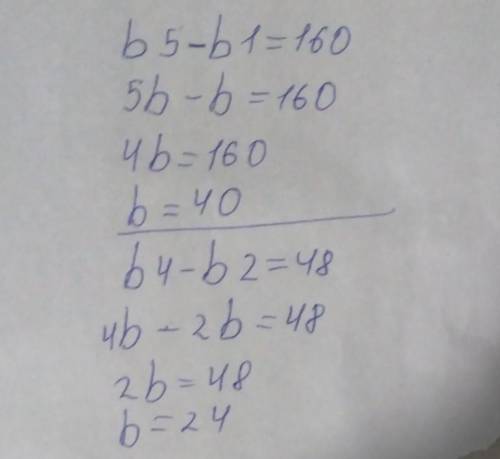 b5-b1=160
5b-b=160
4b=160
b=40
b4-b2=48
4b-2b=48
2b=48
b=24